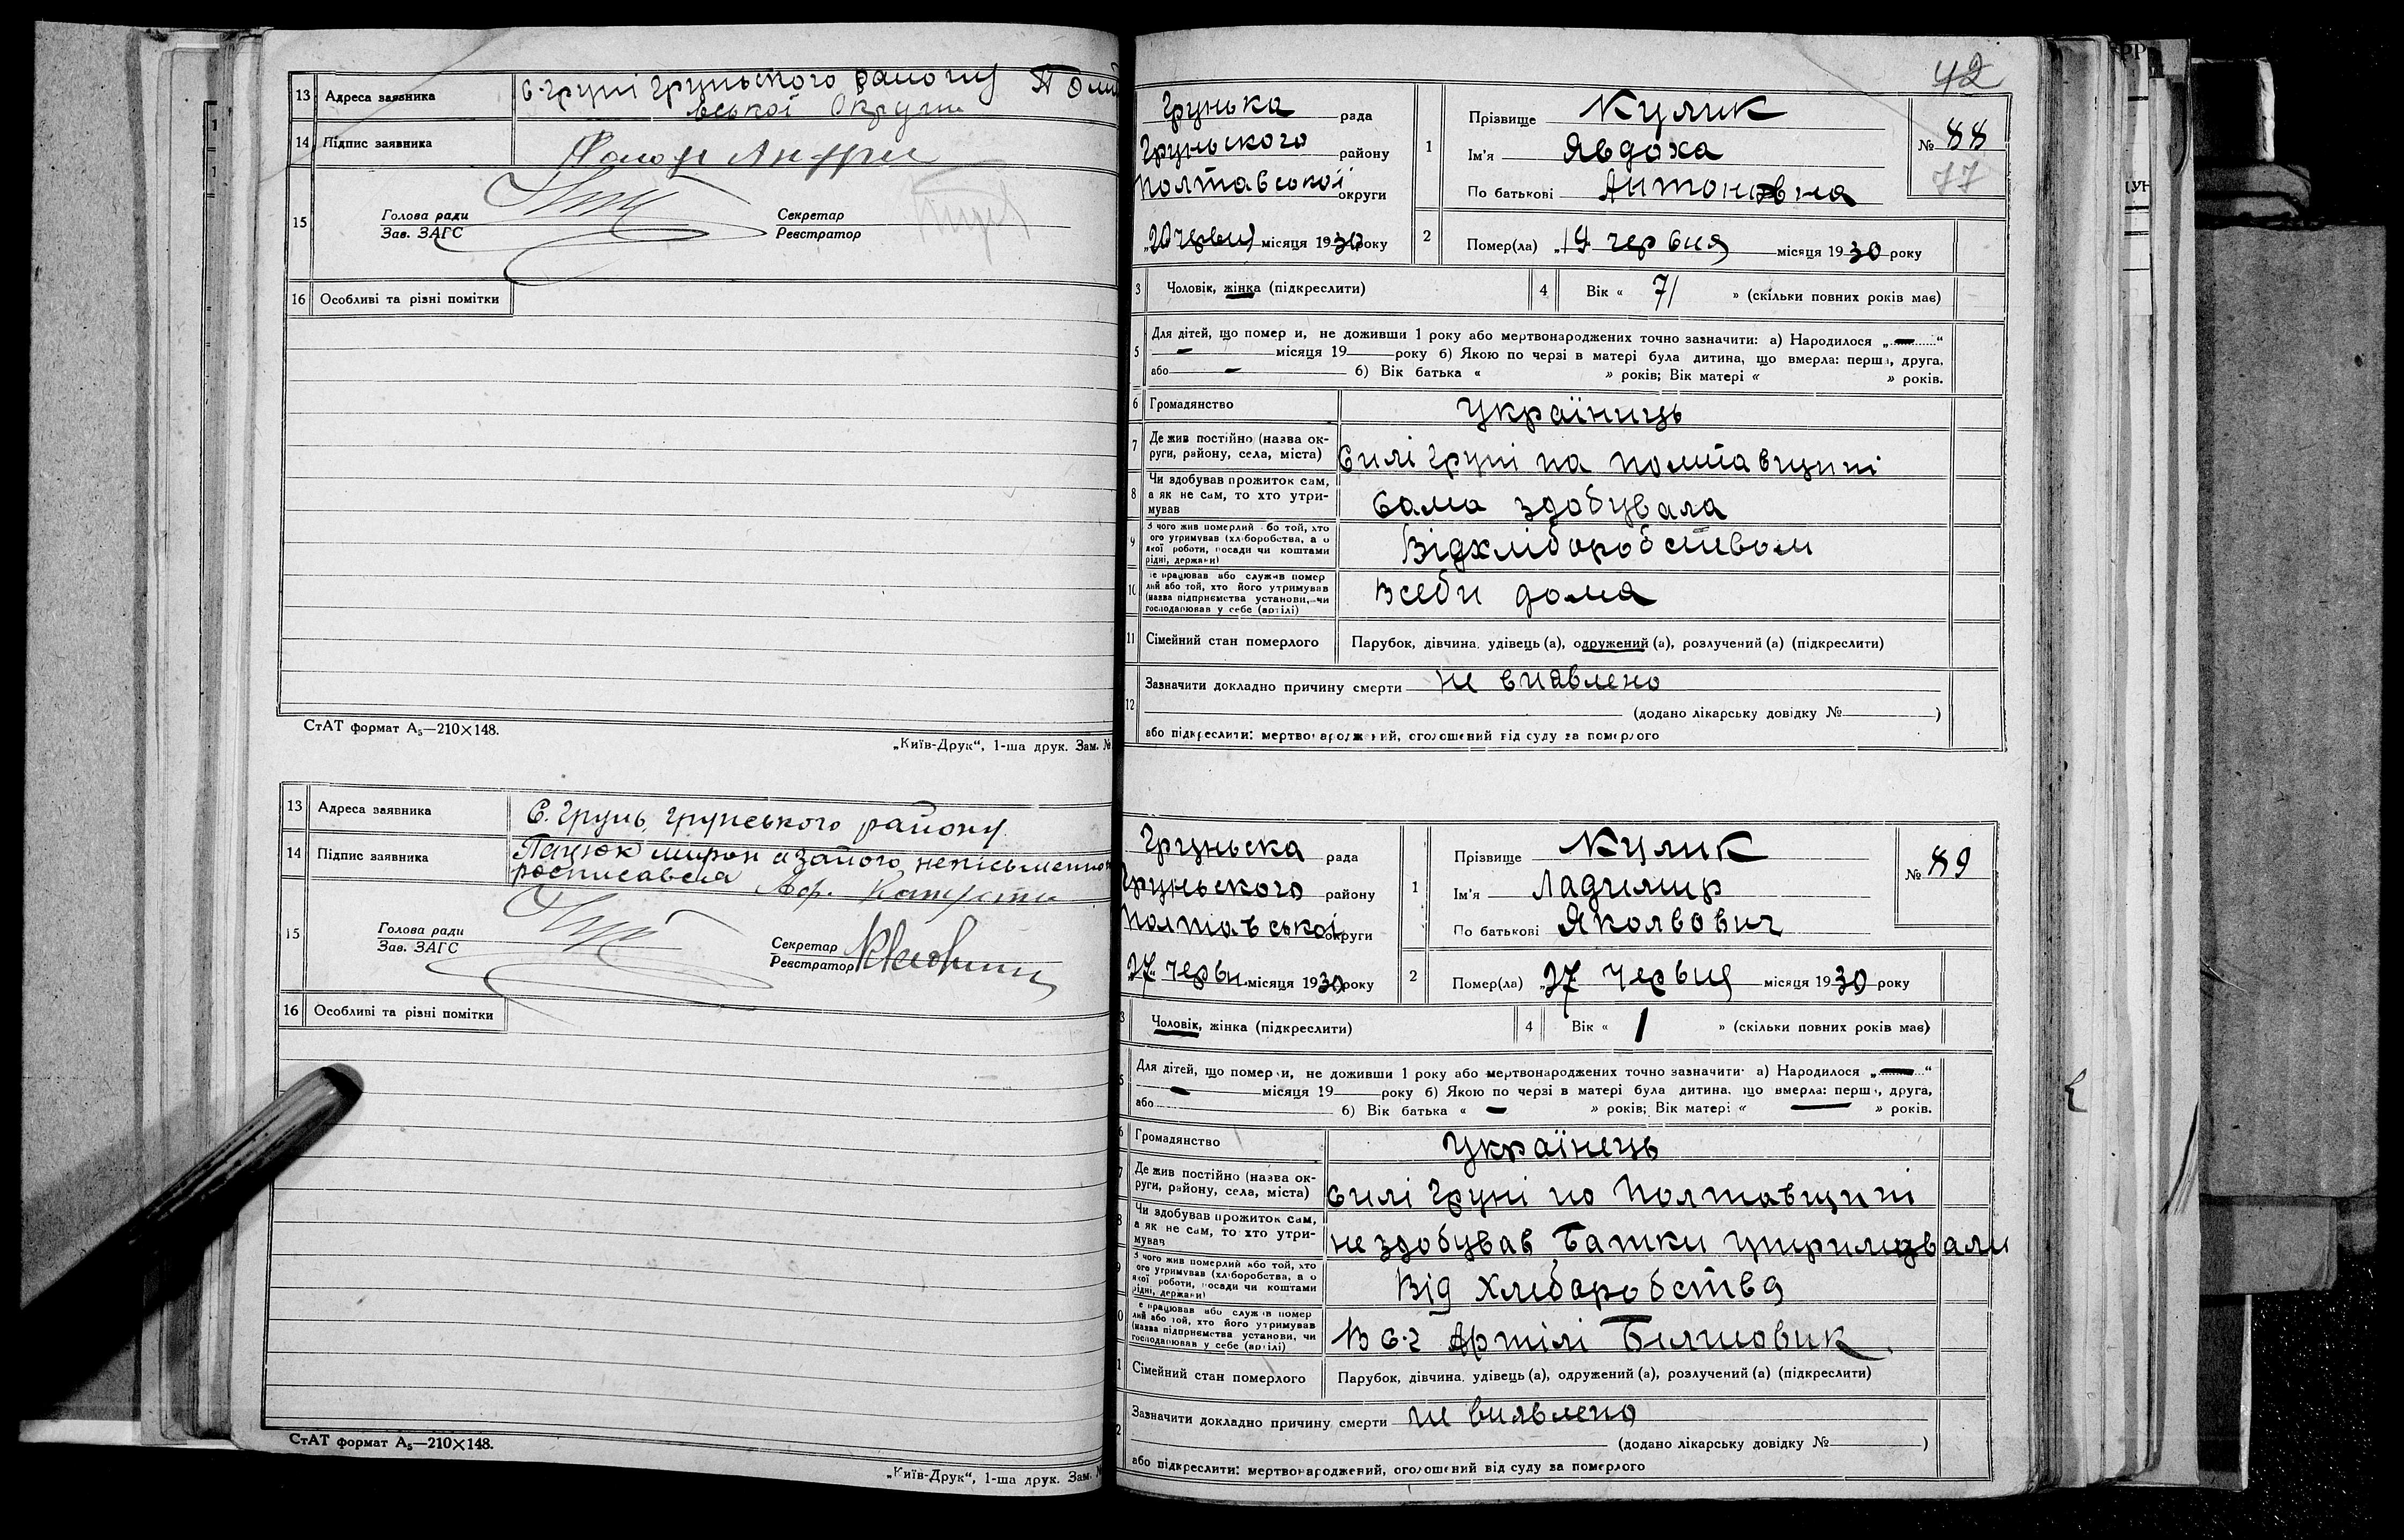 13 Адреса заявника С. Груні Груньского району Полта
вської Округи
14 Підпис заявника
15 Голова ради Секретар
Зав. ЗАГС Реєстратор
16 Особливі та різні помітки
СтАТ формат А₅—210×148.
„Київ-Друк“, 1-ша друк. Зам. №
13 Адреса заявника С. Грунь, Грунського району
14 Підпис заявника Пацюк мирон а зайого неписьменного
росписавсля
15 Голова ради Секретар
Зав. ЗАГС Реєстратор
16 Особливі та різні помітки
СтАТ формат А₅—210×148.
„Київ-Друк“, 1-ша друк. Зам. №
42
Грунька рада
Груньского району
Полтавської округи
„20 червня місяця 1930 року
1 Прізвище Кулик
Ім'я Явдоха
По батькові Антоновна
№ 88
77
2 Помер(ла) „19 червня місяця 1930 року
3 Чоловік, жінка (підкреслити) 4 Вік « 71 » (скільки повних років має)
5 Для дітей, що померли, не доживши 1 року або мертвонароджених точно зазначити: а) Народилося „ — “
— місяця 19 року б) Якою по черзі в матері була дитина, що вмерла: перша, друга,
або — 6) Вік батька « » років; Вік матері « » років.
6 Громадянство Україниць
7 Де жив постійно (назва ок-
руги, району, села, міста) Силі Груні на полтавщині
8 Чи здобував прожиток сам,
а як не сам, то хто утри-
мував Сама здобувала
9 З чого жив померлий або той, хто
його утримував (хліборобства, а о
якої роботи, посади чи коштами
рідні, держави) Відхліборобством
10 Де працював або служив помер
лий або той, хто його утримував
(назва підприємства установи, чи
господарював у себе (артілі) Всеби дома
11 Сімейний стан померлого Парубок, дівчина, удівець (а), одружений (а), розлучений (а) (підкреслити)
12 Зазначити докладно причину смерти не виявлено
(додано лікарську довідку № )
або підкреслити: мертвонароджений, оголошений від суду за померлого
Груньска рада
Груньского району
Полтавської округи
„27 червн місяця 1930 року
1 Прізвище Кулик
Ім'я Ладимир
По батькові Яколвович
№ 89
2 Помер(ла) „27 червня місяця 1930 року
3 Чоловік, жінка (підкреслити) 4 Вік « 1 » (скільки повних років має)
5 Для дітей, що померли, не доживши 1 року або мертвонароджених точно зазначити: а) Народилося „ — “
— місяця 19 року б) Якою по черзі в матері була дитина, що вмерла: перша, друга,
або 6) Вік батька « — » років; Вік матері « — » років.
6 Громадянство Українець
7 Де жив постійно (назва ок-
руги, району, села, міста) силі Груні по Полтавщині
8 Чи здобував прожиток сам,
а як не сам, то хто утри-
мував не здобував, Батки утримували
9 З чого жив померлий або той, хто
його утримував (хліборобства, а о
якої роботи, посади чи коштами
рідні, держави) Від Хлеборобства
10 Де працював або служив помер
лий або той, хто його утримував
(назва підприємства установи, чи
господарював у себе (артілі) В С-г Артілі Билшовик
11 Сімейний стан померлого Парубок, дівчина, удівець (а), одружений (а), розлучений (а) (підкреслити)
12 Зазначити докладно причину смерти не виявлено
(додано лікарську довідку № )
або підкреслити: мертвонароджений, оголошений від суду за померлого